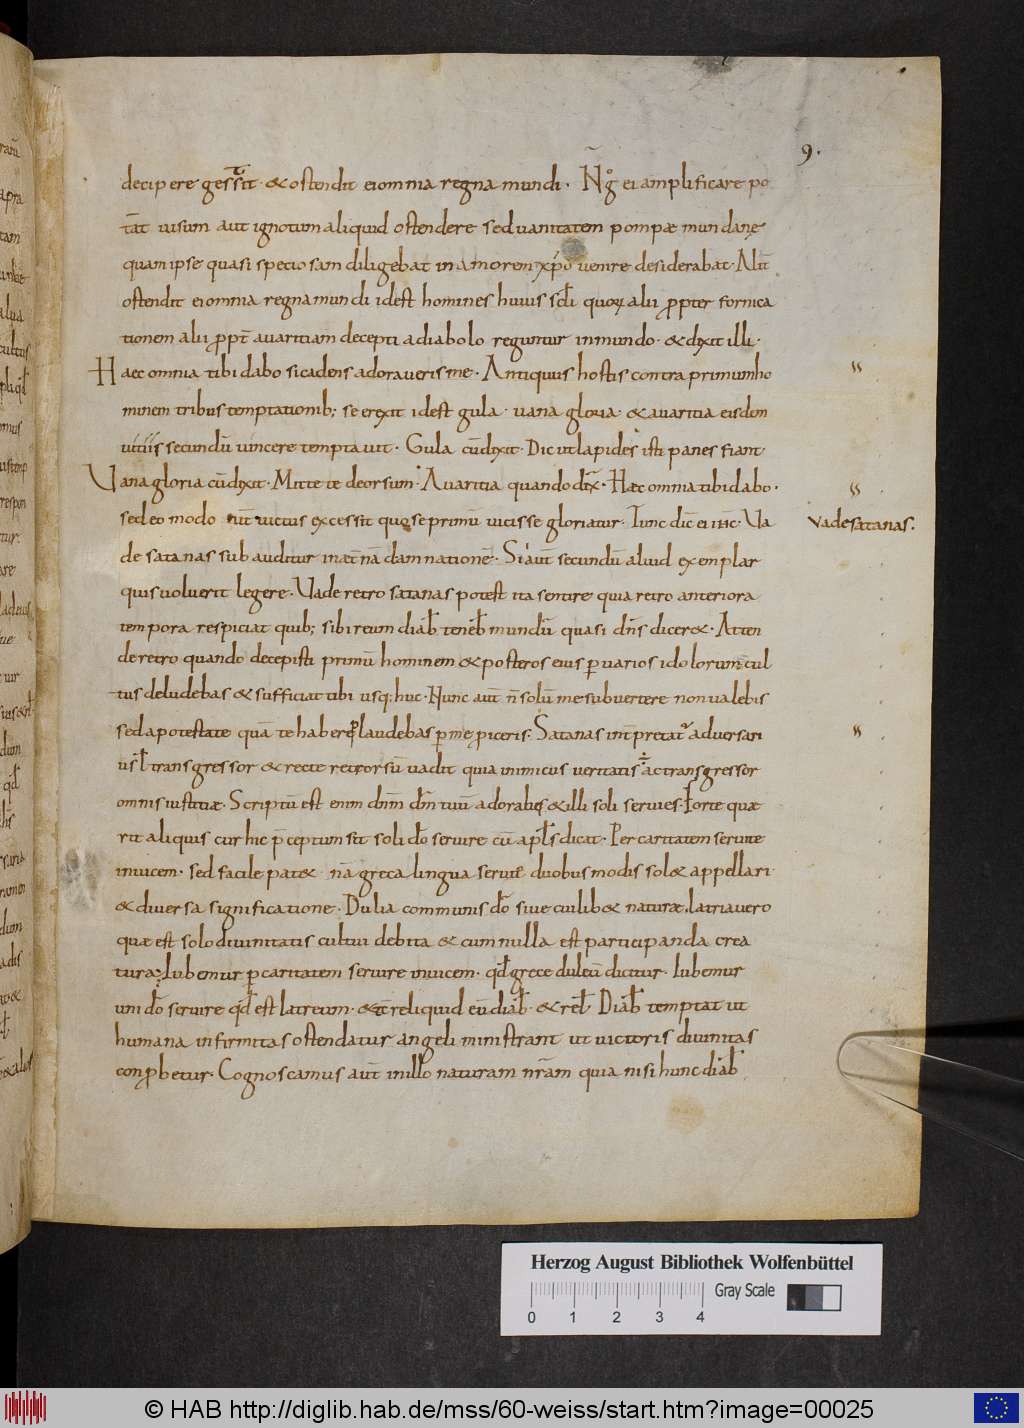 9.
decipere gessit. & ostendit ei omnia regna mundi. Ñ g̊ ei amplificare po
t̄at visum aut ignotum aliquid ostendere sed vanitatem pompæ mundanę
quam ipse quasi speciosam diligebat in amorem xp̄o venire desiderabat. Alit̄
ostendit ei omnia regna mundi id est homines huius sc̄li quoꝝ alii ꝓpter fornica
tionem alii ꝓpt̄ avaritiam decepti a diabolo reguntur in mundo. & dixit illi.
Haec omnia tibi dabo si cadens adoraveris me. Antiquus hostis contra primum ho
minem tribus temptationib; se erexit id est gula. vana gloria & avaritia eisdem
vitiis secundū vincere temptavit. Gula cū dixit. Dic ut lapides isti panes fiant
Vana gloria cū dixit. Mitte te deorsum. Avaritia quando dix̄. Hæc omnia tibi dabo.
sed eo modo victus excessit quo se primū vicisse gloriatur. Tunc dic̄ ei ih̄c. Va
Vade satanas.
de satanas subauditur in æt̄nā damnationē. Si aut̄ secundū aliud exemplar
quis voluerit legere. Vade retro satanas potest ita sentire quia retro anteriora
tempora respiciat quib; sibi reum diab̄ teneb̄ mundū quasi dn̄s dicer&. Atten
de retro quando decepisti primū hominem & posteros eius ꝑ varios idolorum cul
tus deludebas & sufficiat tibi usq; huc. Nunc aut̄ n̄ solū me subvertere non valebis
sed a potestate quā te habere plaudebas ꝑ me ꝓiceris. Satanas int̄pretat᷑ adversari
us l̄ transgressor & recte retrorsū vadit quia inimicus veritatis ac transgressor
omnis iustitiæ. Scriptū est enim dn̄m dm̄ tuū adorabis & illi soli servies. Forte quæ
rit aliquis cur hic p̄ceptum sit soli do̅ servire cū apl̄s dicat. Per caritatem servite
invicem. sed facile pat& nā greca lingua duobus modis sol& appellari
& diversa significatione. Dulia communis do̅ sive cuilib& naturæ. latria vero
quæ est solo divinitatis cultui debita & cum nulla est participanda crea
tura. Iubemur ꝑ caritatem servire invicem. qd̄ grece duleū dicitur. Iubemur
uni do̅ servire qd̄ est latreum. & reliquid eū diab̄. & rel̄. Diab̄ temptat ut
humana infirmitas ostendatur angeli ministrant ut victoris divinitas
conꝓbetur. Cognoscamus aut̄ in illo naturam nr̄am quia nisi hunc diab̄
Herzog August Bibliothek Wolfenbüttel
Gray Scale
0 1 2 3 4
© HAB http://diglib.hab.de/mss/60-weiss/start.htm?image=00025